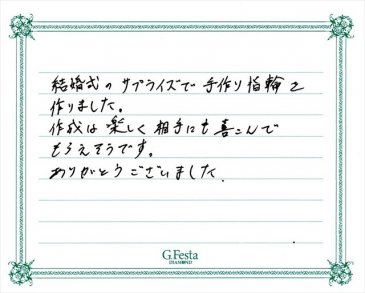 結婚式のサプライズで手作り指輪を
作りました。
作成は楽しく相手にも喜こんで
もらえそうです。
ありがとうございました.
G.Festa
DIAMOND